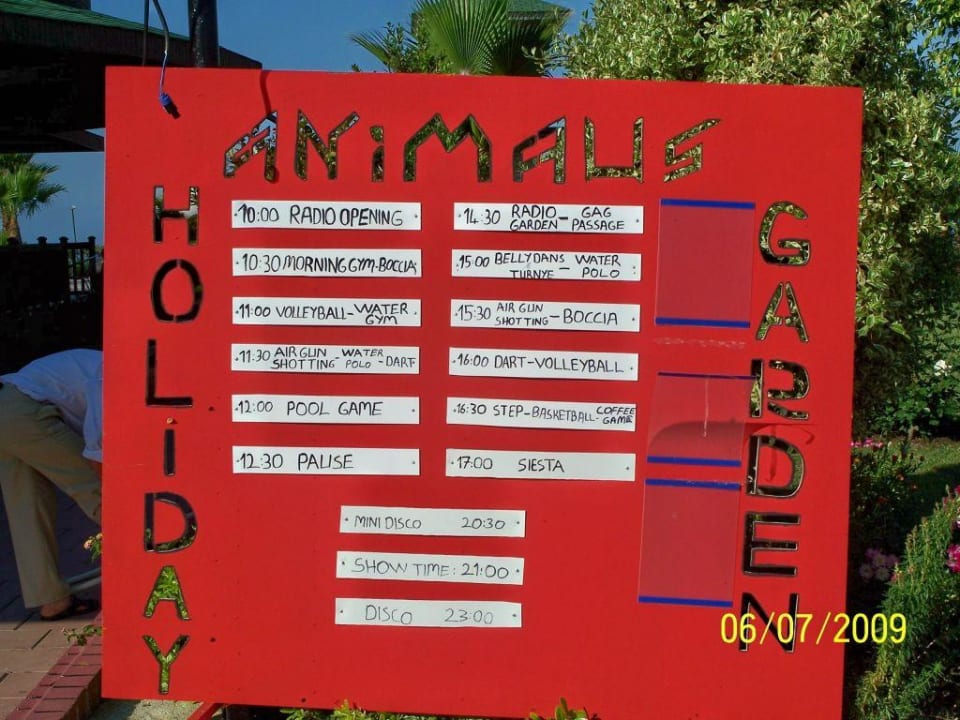 ANiMAUS
HOLiDAY
GARDEN
10:00 RADIO OPENING
10:30 MORNING GYM-BOCCIA
11:00 VOLLEYBALL-WATER
GYM
11:30 AIR GUN SHOTTING-WATER POLO-DART
12:00 POOL GAME
12:30 PAUSE
14:30 RADIO GARDEN-GAG PASSAGE
15:00 BELLYDANS TURNYE-WATER POLO
15:30 AIR GUN SHOTTING-BOCCIA
16:00 DART-VOLLEYBALL
16:30 STEP-BASKETBALL-COFFEE GAME
17:00 SIESTA
MINI DISCO 20:30
SHOW TIME: 21:00
DISCO 23:00
06/07/2009